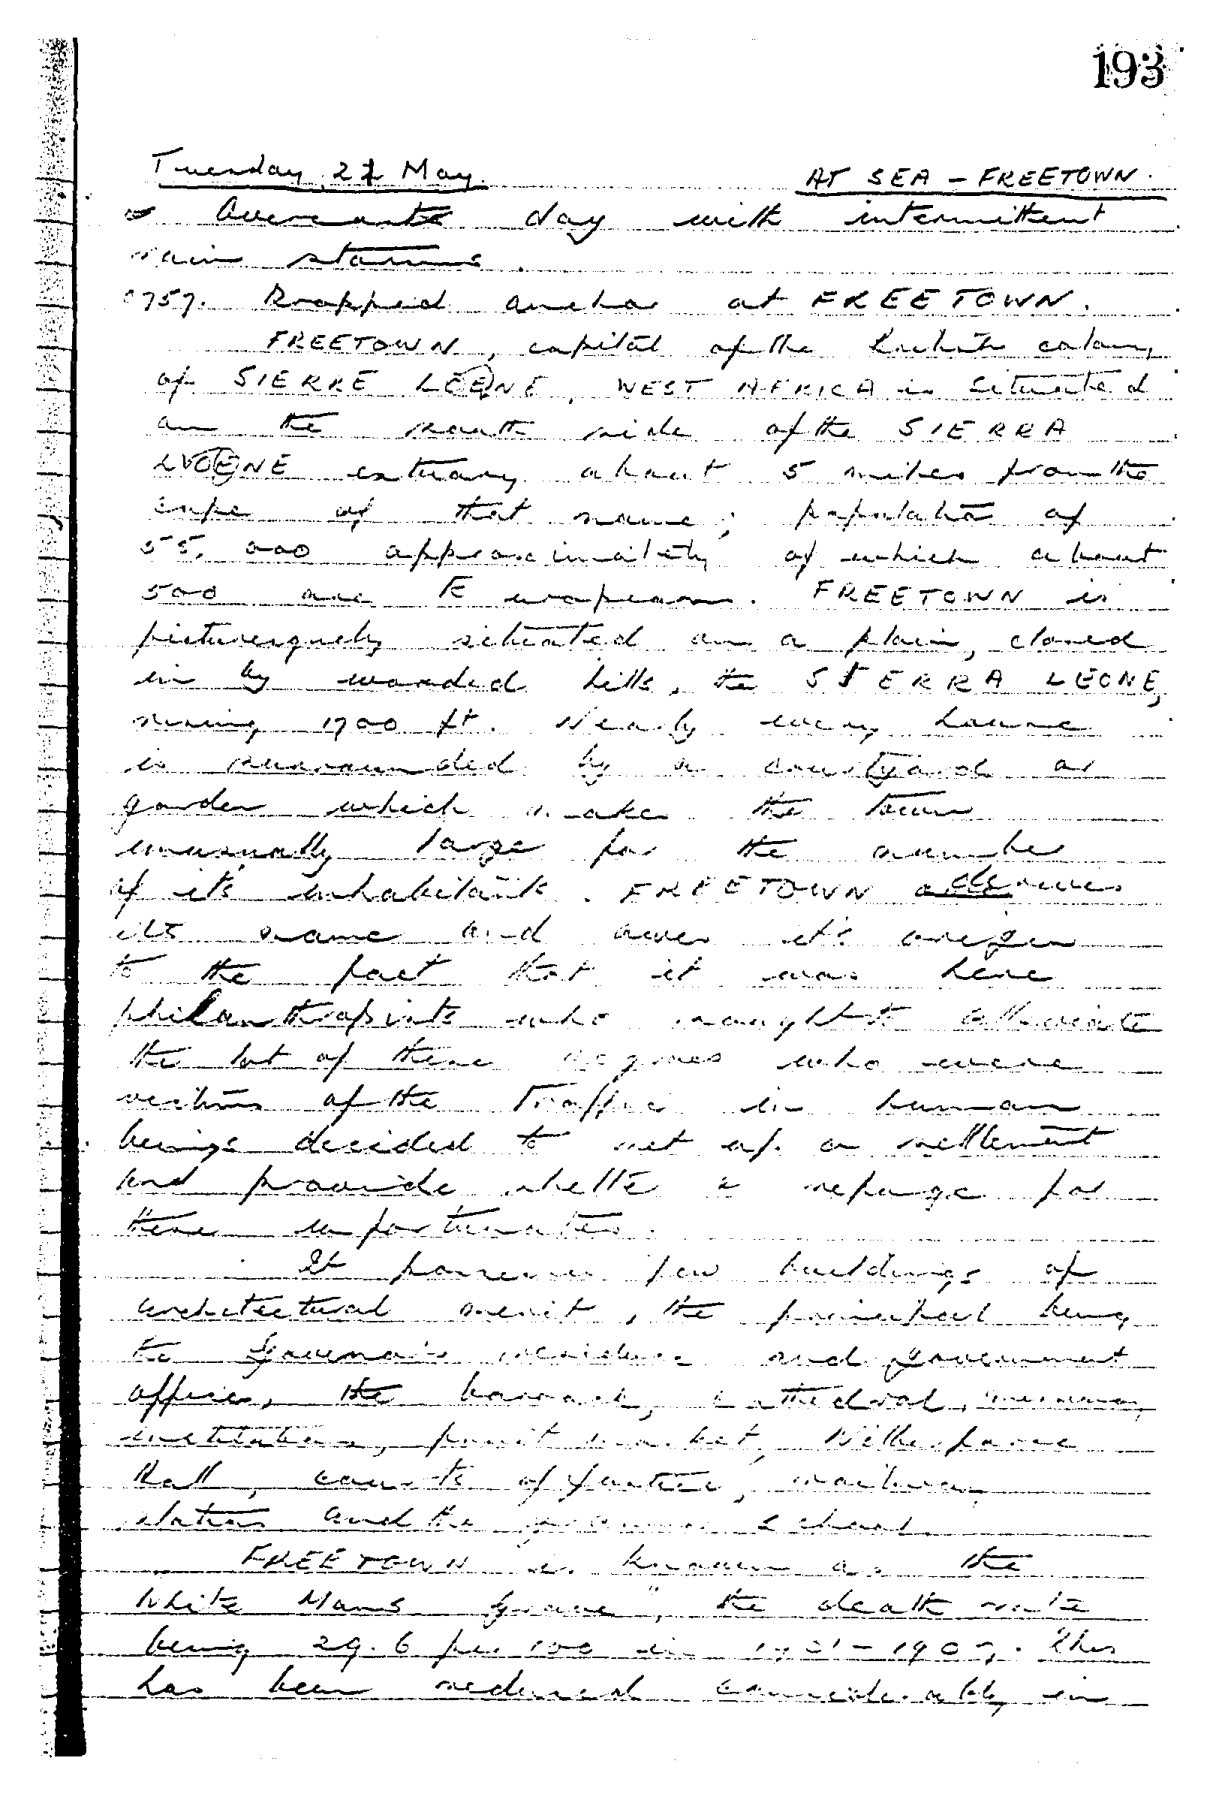 193
Tuesday, 27 May. AT SEA – FREETOWN.
Overcast day with intermittent
rain storms.
0757. Dropped anchor at FREETOWN.
FREETOWN, capital of the British colony
of SIERRE LEONE, WEST AFRICA is situated
on the south side of the SIERRA
LEONE estuary about 5 miles from the
cape of that name; population of
55,000 approximately of which about
500 are Europeans. FREETOWN is
picturesquely situated on a plain, closed
in by wooded hills, the SIERRA LEONE,
rising 1700 ft. Nearly every house
is surrounded by a courtyard or
garden which make the town
unusually large for the number
of it's inhabitants. FREETOWN derives
its name and owes it's origin
to the fact that it was here
philanthropists who sought to alleviate
the lot of these negroes who were
victims of the Traffic in human
beings decided to set up a settlement
and provide shelter & refuge for
these unfortunates.
It possesses few buildings of
architectural merit, the principal being
the Governor's residence and government
offices, the barracks, cathedral, missionary
institutions, fruit market, Wilberforce
Hall, courts of justice, railway
station and the grammar school.
FREETOWN is known as the
White Mans Grave", the death rate
being 29.6 per 100 in 1901-1907. This
has been reduced considerably in